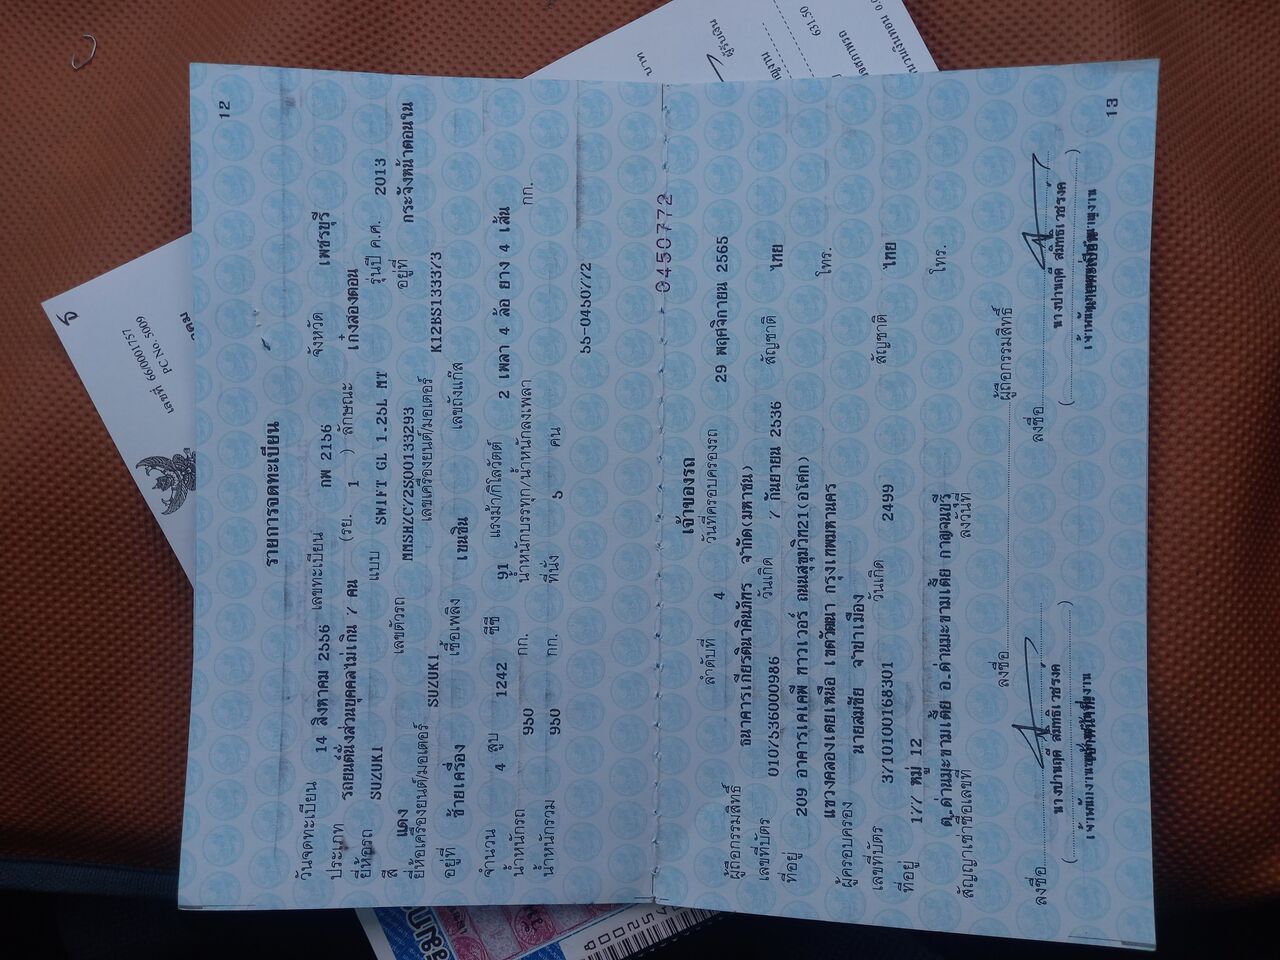 12
รายการจดทะเบียน
วันจดทะเบียน 14 สิงหาคม 2556 เลขทะเบียน กพ 2156 จังหวัด เพชรบุรี
ประเภท รถยนต์นั่งส่วนบุคคลไม่เกิน 7 คน (รย. 1 ) ลักษณะ เก๋งสองตอน
ยี่ห้อรถ SUZUKI แบบ SWIFT GL 1.25L MT รุ่นปี ค.ศ. 2013
สี แดง เลขตัวรถ MMSHZC72S00133293 อยู่ที่ กระจังหน้าตอนใน
ยี่ห้อเครื่องยนต์/มอเตอร์ SUZUKI เลขเครื่องยนต์/มอเตอร์ K12BS1333373
อยู่ที่ ซ้ายเครื่อง เชื้อเพลิง เบนซิน เลขถังแก๊ส
จำนวน 4 สูบ 1242 ซีซี 91 แรงม้า/กิโลวัตต์ 2 เพลา 4 ล้อ ยาง 4 เส้น
น้ำหนักรถ 950 กก. น้ำหนักบรรทุก/น้ำหนักลงเพลา กก.
น้ำหนักรวม 950 กก. ที่นั่ง 5 คน
55-0450772
0450772
เจ้าของรถ
ลำดับที่ 4 วันที่ครอบครองรถ 29 พฤศจิกายน 2565
ผู้ถือกรรมสิทธิ์ ธนาคารเกียรตินาคินภัทร จำกัด(มหาชน)
เลขที่บัตร 0107536000986 วันเกิด 7 กันยายน 2536 สัญชาติ ไทย
ที่อยู่ 209 อาคารเคเคพี ทาวเวอร์ ถนนสุขุมวิท21(อโศก) โทร.
แขวงคลองเตยเหนือ เขตวัฒนา กรุงเทพมหานคร
ผู้ครอบครอง นายสมชัย จำปาเมือง
เลขที่บัตร 3710100168301 วันเกิด 2499 สัญชาติ ไทย
ที่อยู่ 177 หมู่ 12 โทร.
ต.ด่านมะขามเตี้ย อ.ด่านมะขามเตี้ย กาญจนบุรี
สัญญาเช่าซื้อเลขที่ ลงวันที่
ลงชื่อ ผู้ถือกรรมสิทธิ์
ลงชื่อ ลงชื่อ
( นางปานฤดี สมิทธิเวชรงค ) ( นางปานฤดี สมิทธิเวชรงค )
13
เลขที่ 66/0001757
PC No. 5009
บาท
ผู้รับเงิน
631.50
52008